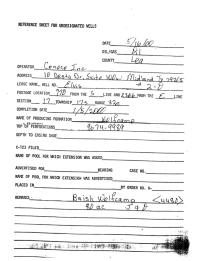 REFERENCE SHEET FOR UNDESIGNATED WELLS
DATE 5/16/00
OIL/GAS Oil
COUNTY Lea
OPERATOR Conoco Inc
ADDRESS 10 Desta Dr, Suite 100W Midland Tx 79705
LEASE NAME, WELL NO. Elvis # 2-D
FOOTAGE LOCATION 990 FROM THE S LINE AND 2306 FROM THE E LINE
SECTION 17 TOWNSHIP 17S RANGE 32E
COMPLETION DATE 1/5/2000
NAME OF PRODUCING FORMATION Wolfcamp
TOP OF PERFORATIONS 9674-9989
DEPTH TO CASING SHOE
C-123 FILED
NAME OF POOL FOR WHICH EXTENSION WAS ASKED
ADVERTISED FOR HEARING CASE NO.
NAME OF POOL FOR WHICH EXTENSION WAS ADVERTISED
PLACED IN BY ORDER NO. R-
REMARKS Baish Wolfcamp <4480>
80 ac J & O